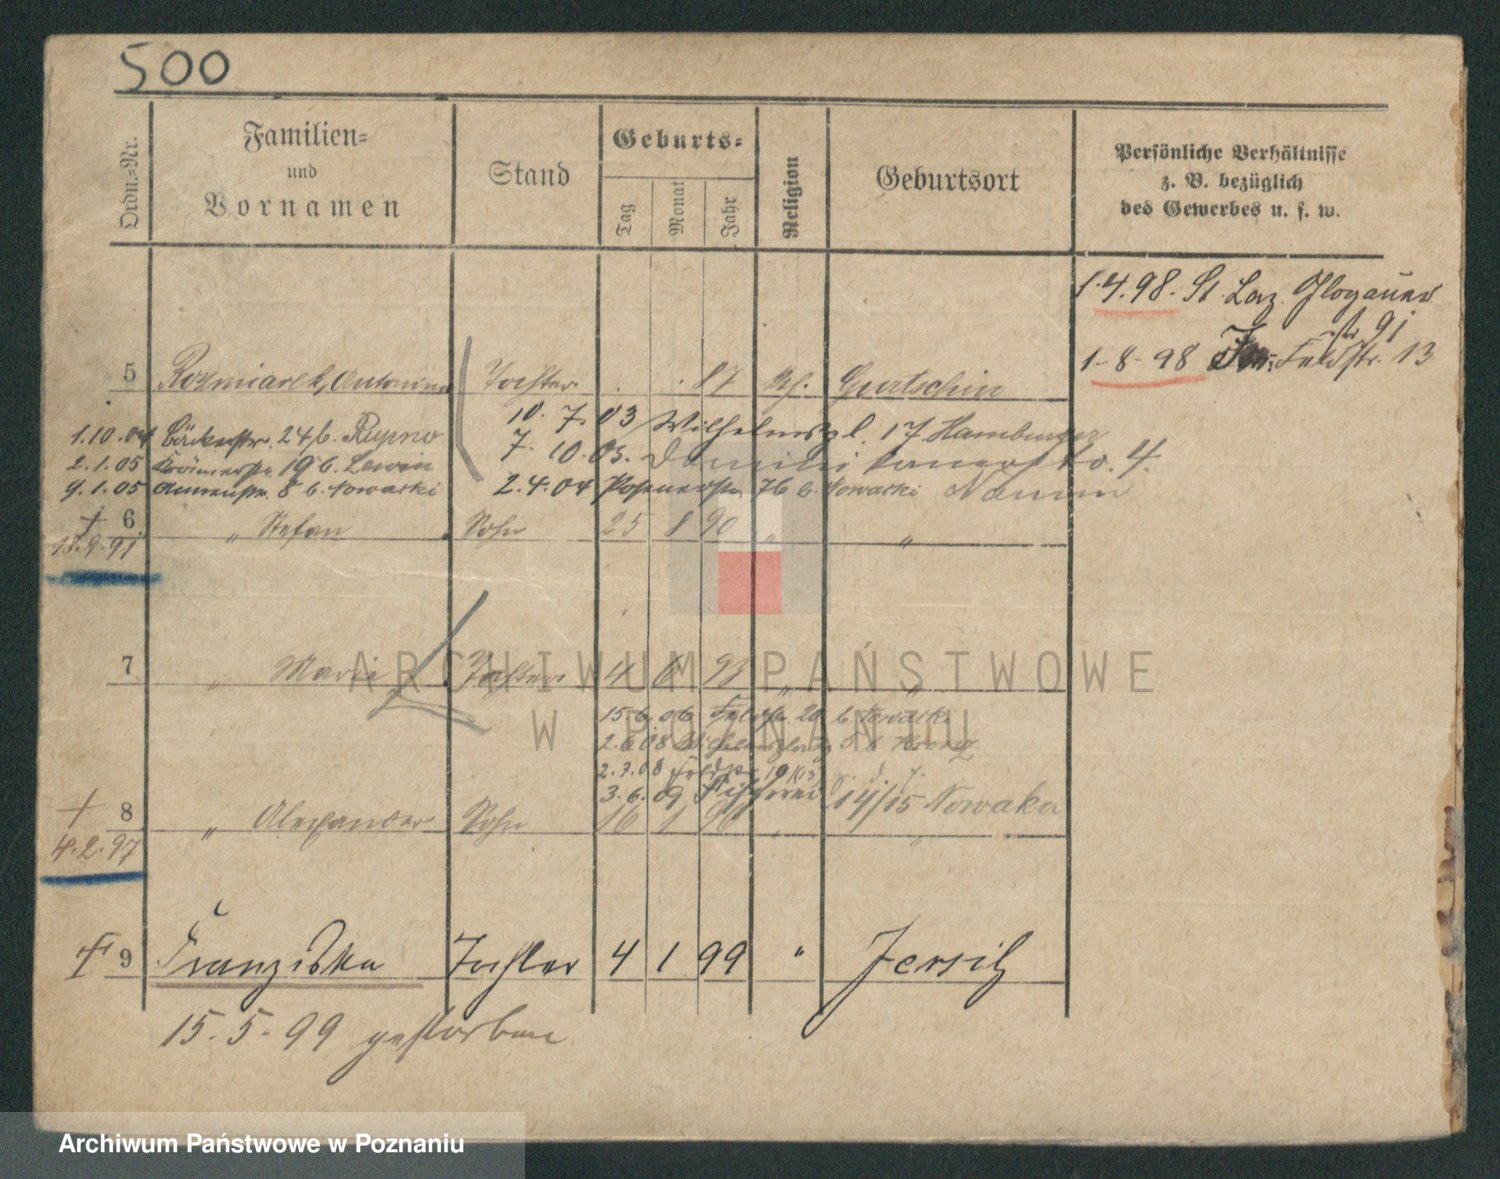 500
Ordn.=Nr.
Familien=
und
Vornamen
Stand
Geburts=
Tag
Monat
Jahr
Religion
Geburtsort
Persönliche Verhältnisse
z. B. bezüglich
des Gewerbes u. s. w.
1.4.98. St. Laz. Glogauer
str. 91
1-8-98 Feldstr. 13
5 Rozmiarek, Antonina Tochter 87 Gurtschin
10. 7. 03 Wilhelmspl. 17 Hamburger
1.10.04 Bäckerstr. 24 b.
7. 10. 03. 4.
2.1.05 19 b. Lewin
9.1.05 8 b. Nowacki 2.4.04 Posenerstr. 76 b. Nowacki
† 6 " Stefan Sohn 25 8 90 " "
18.9.91
7 " Marie Tochter 4 93 " "
15.6.06 Feldstr. 20 b. Nowacki
2.6.08
2.7.08
3.6.09 14/15 Nowaka
† 8 " Alexander Sohn 16 1 96 " "
4.2.97
† 9 Franziska Tochter 4 1 99 " Jersitz
15.5.99 gestorben
ARCHIWUM PAŃSTWOWE
W POZNANIU
Archiwum Państwowe w Poznaniu